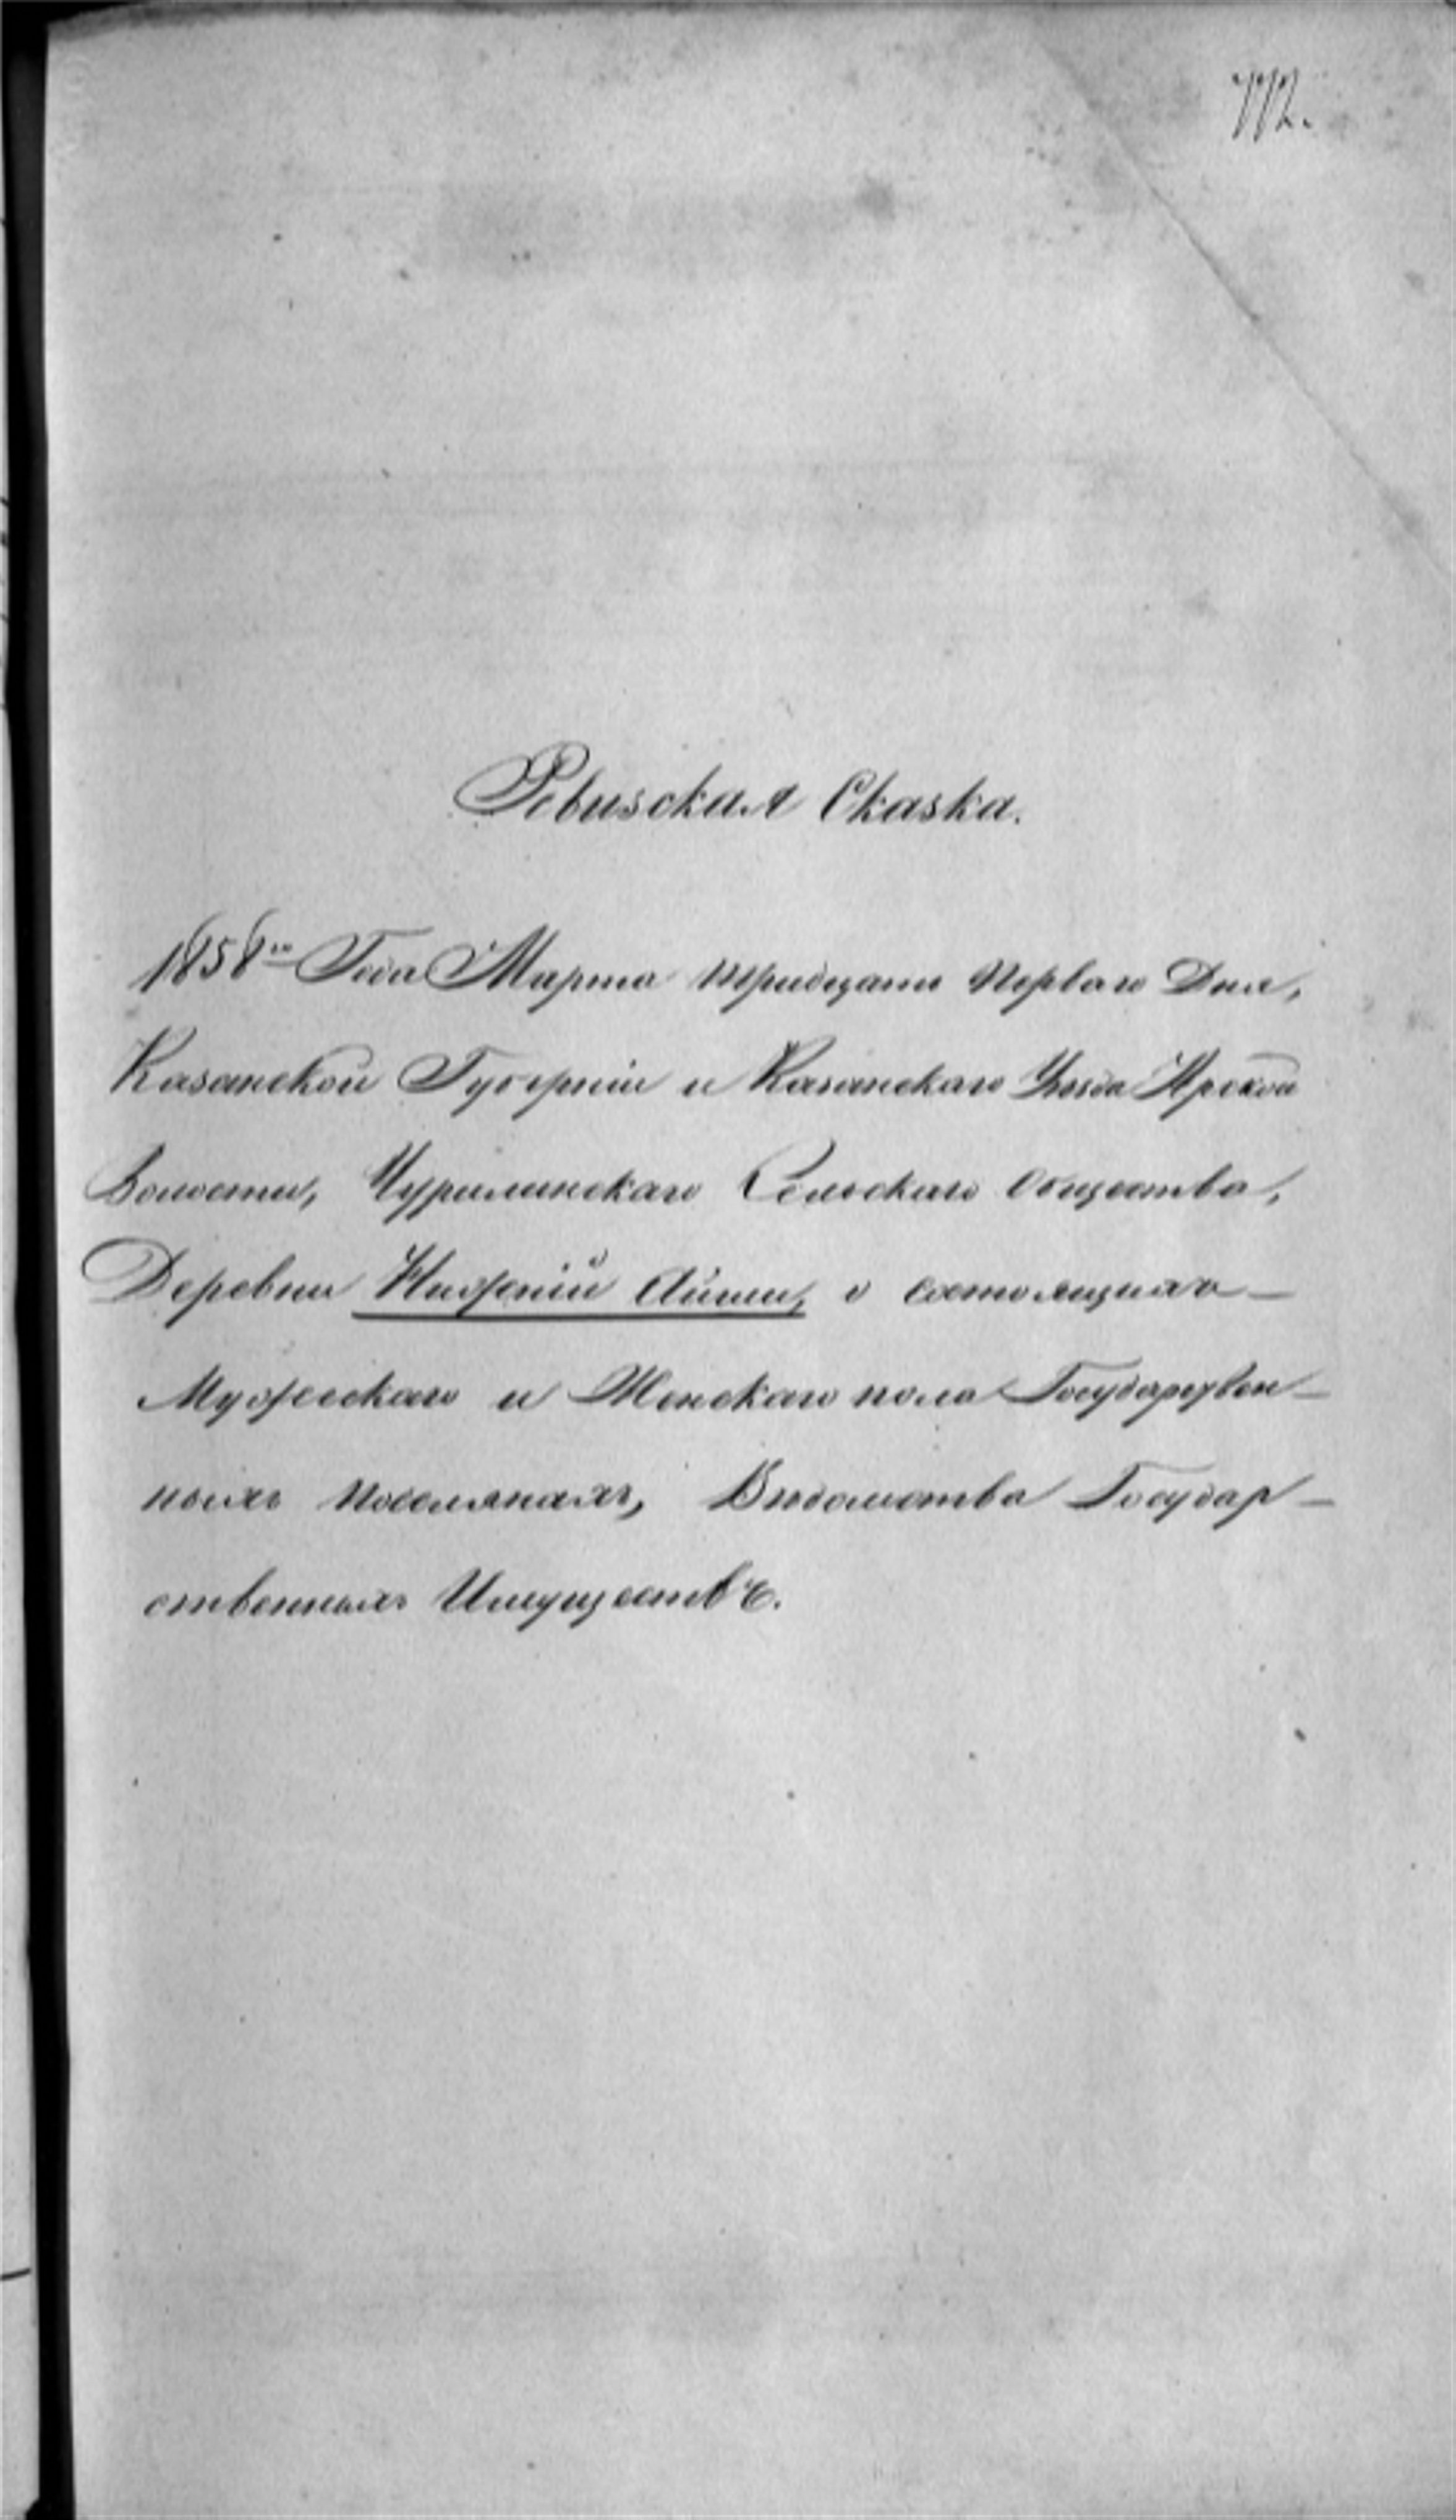 772.
Ревизская Сказка.
1858го Года Марта тридцать перваго Дня,
Казанской Губерніи и Казанскаго Уезда Арской
Волости, Чурилинскаго Сельскаго Общества,
Деревни Нижній Айши, о состоящихъ
Мужескаго и Женскаго пола Государствен-
ныхъ поселянахъ, Видомства Государ-
ственныхъ Имуществъ.